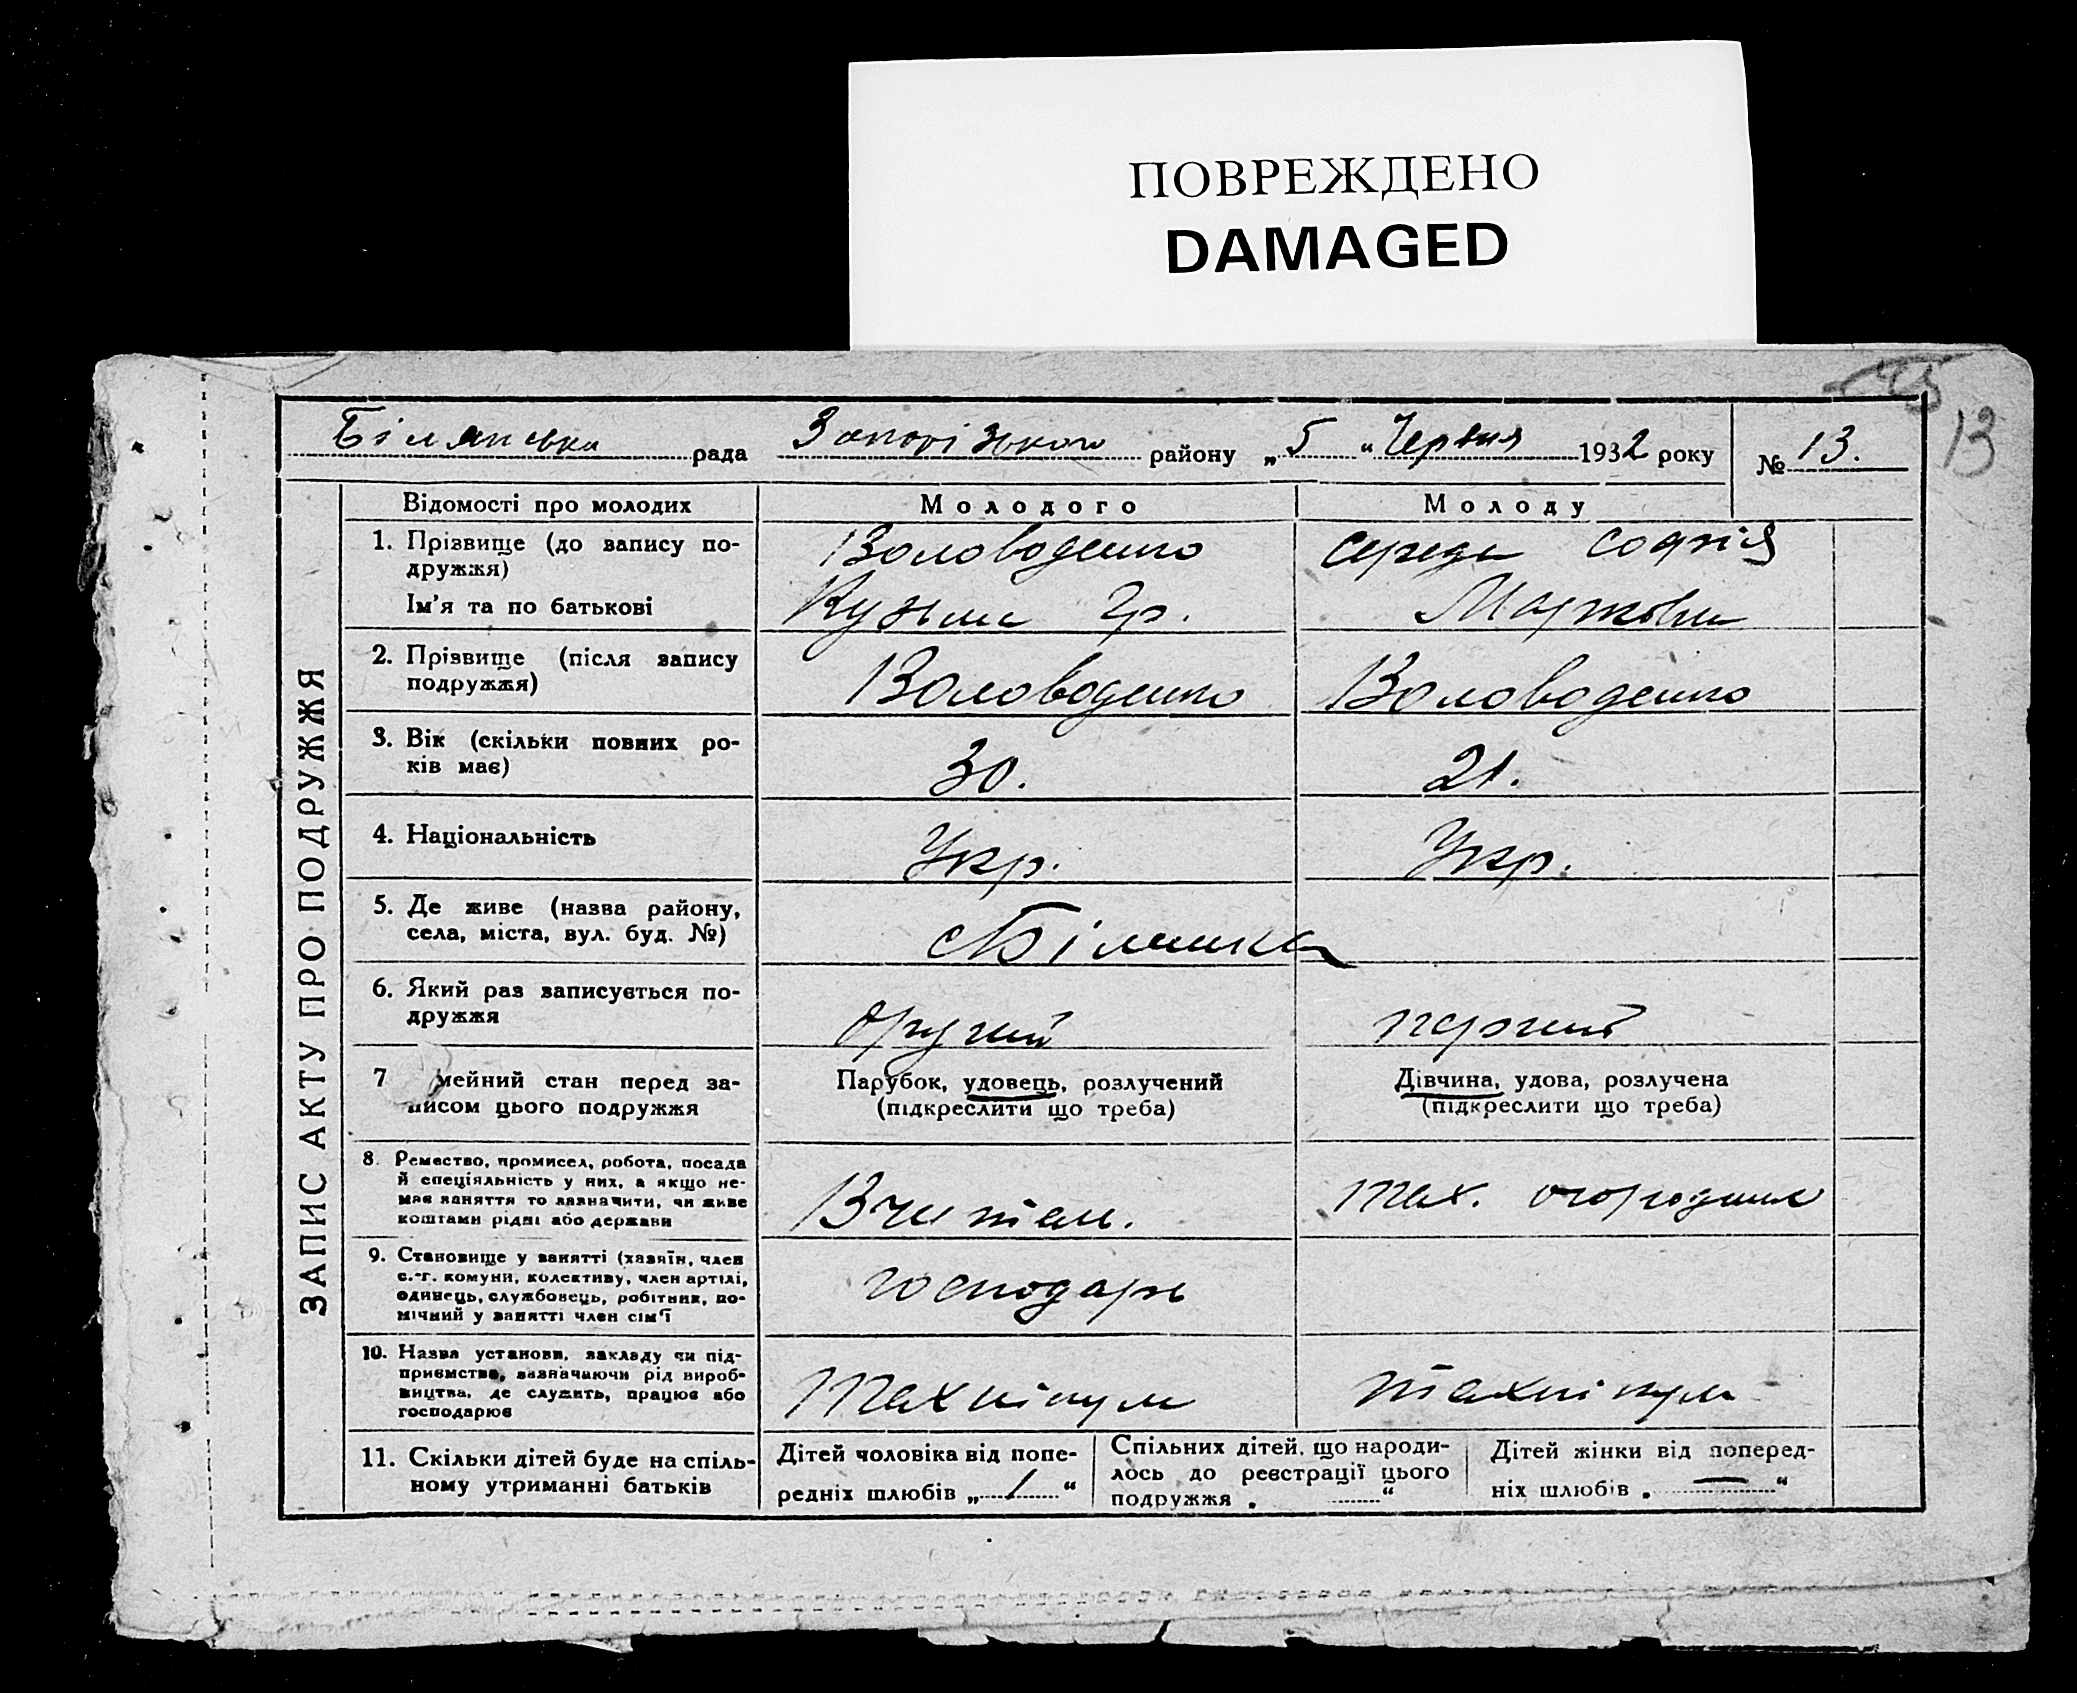 ПОВРЕЖДЕНО
DAMAGED
13
Білянська рада Запорізького району „ 5 “ Червня 1932 року № 13.
ЗАПИС АКТУ ПРО ПОДРУЖЖЯ
Відомості про молодих Молодого Молоду
1. Прізвище (до запису по-
дружжя)
Володовенко Середа Софія
Ім'я та по батькові Кузьма Гр. Марківна
2. Прізвище (після запису
подружжя)
Воловоденко Воловоденко
3. Вік (скільки повних ро-
ків має)
30. 21.
4. Національність Укр. Укр.
5. Де живе (назва району,
села, міста, вул. буд. №)
6. Який раз записується по-
дружжя
другий перший
7 мейний стан перед за-
писом цього подружжя
Парубок, удовець, розлучений
(підкреслити що треба)
Дівчина, удова, розлучена
(підкреслити що треба)
8. Ремество, промисел, робота, посада
й спеціяльність у них, а якщо не-
має заняття то зазначити, чи живе
коштами рідні або держави
Вчитель. тех.
9. Становище у занятті (хазяїн, член
с.-г. комуни, колективу, член артілі,
одинець, службовець, робітник, по-
мічний у занятті член сім'ї
господарь
10. Назва установи, закладу чи під-
приємства, зазначаючи рід вироб-
ництва, де служить, працює або
господарює
Технікум технікум
11. Скільки дітей буде на спіль-
ному утриманні батьків
Дітей чоловіка від попе-
редніх шлюбів „ 1 “
Спільних дітей, що народи-
лось до реєстрації цього
подружжя „ “
Дітей жінки від поперед-
ніх шлюбів „ — “